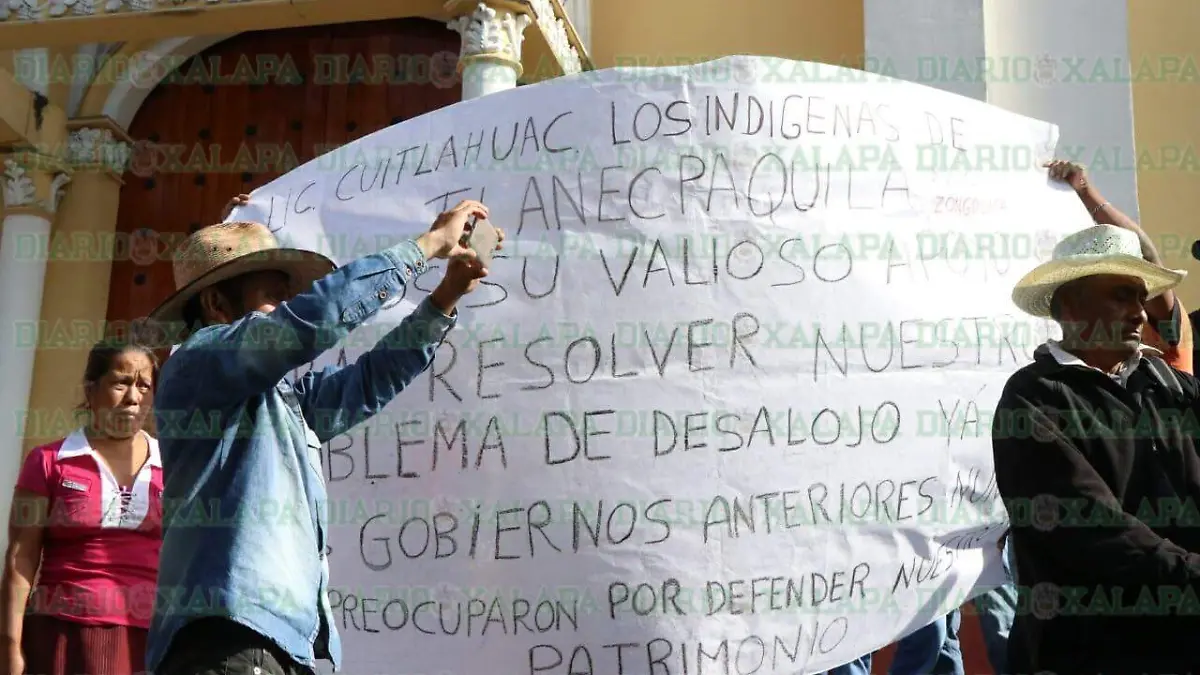 LIC. CUITLAHUAC. LOS INDIGENAS DE
TLANECPAQUILA
SU VALIOSO APOYO
RESOLVER NUESTRO
BLEMA DE DESALOJO YÁ
GOBIERNOS ANTERIORES NUN
PREOCUPARON POR DEFENDER NUEST
PATRIMONIO
DIARIO XALAPA